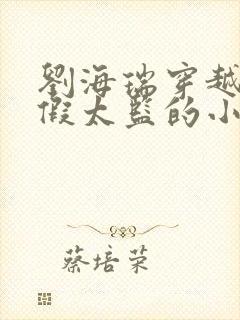 劉海瑞穿越
假太監的小
蔡培荣